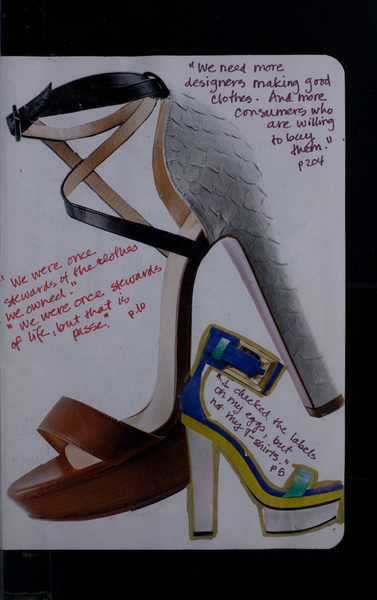 "We need more
designers making good
clothes. And more
consumers who
are willing
to buy
them."
p204
"We were once
stewards of the clothes
we owned."
"We were once stewards
of life, but that is
passe."
p.10
"I checked the labels
on my eggs, but
not my T-shirts."
p5